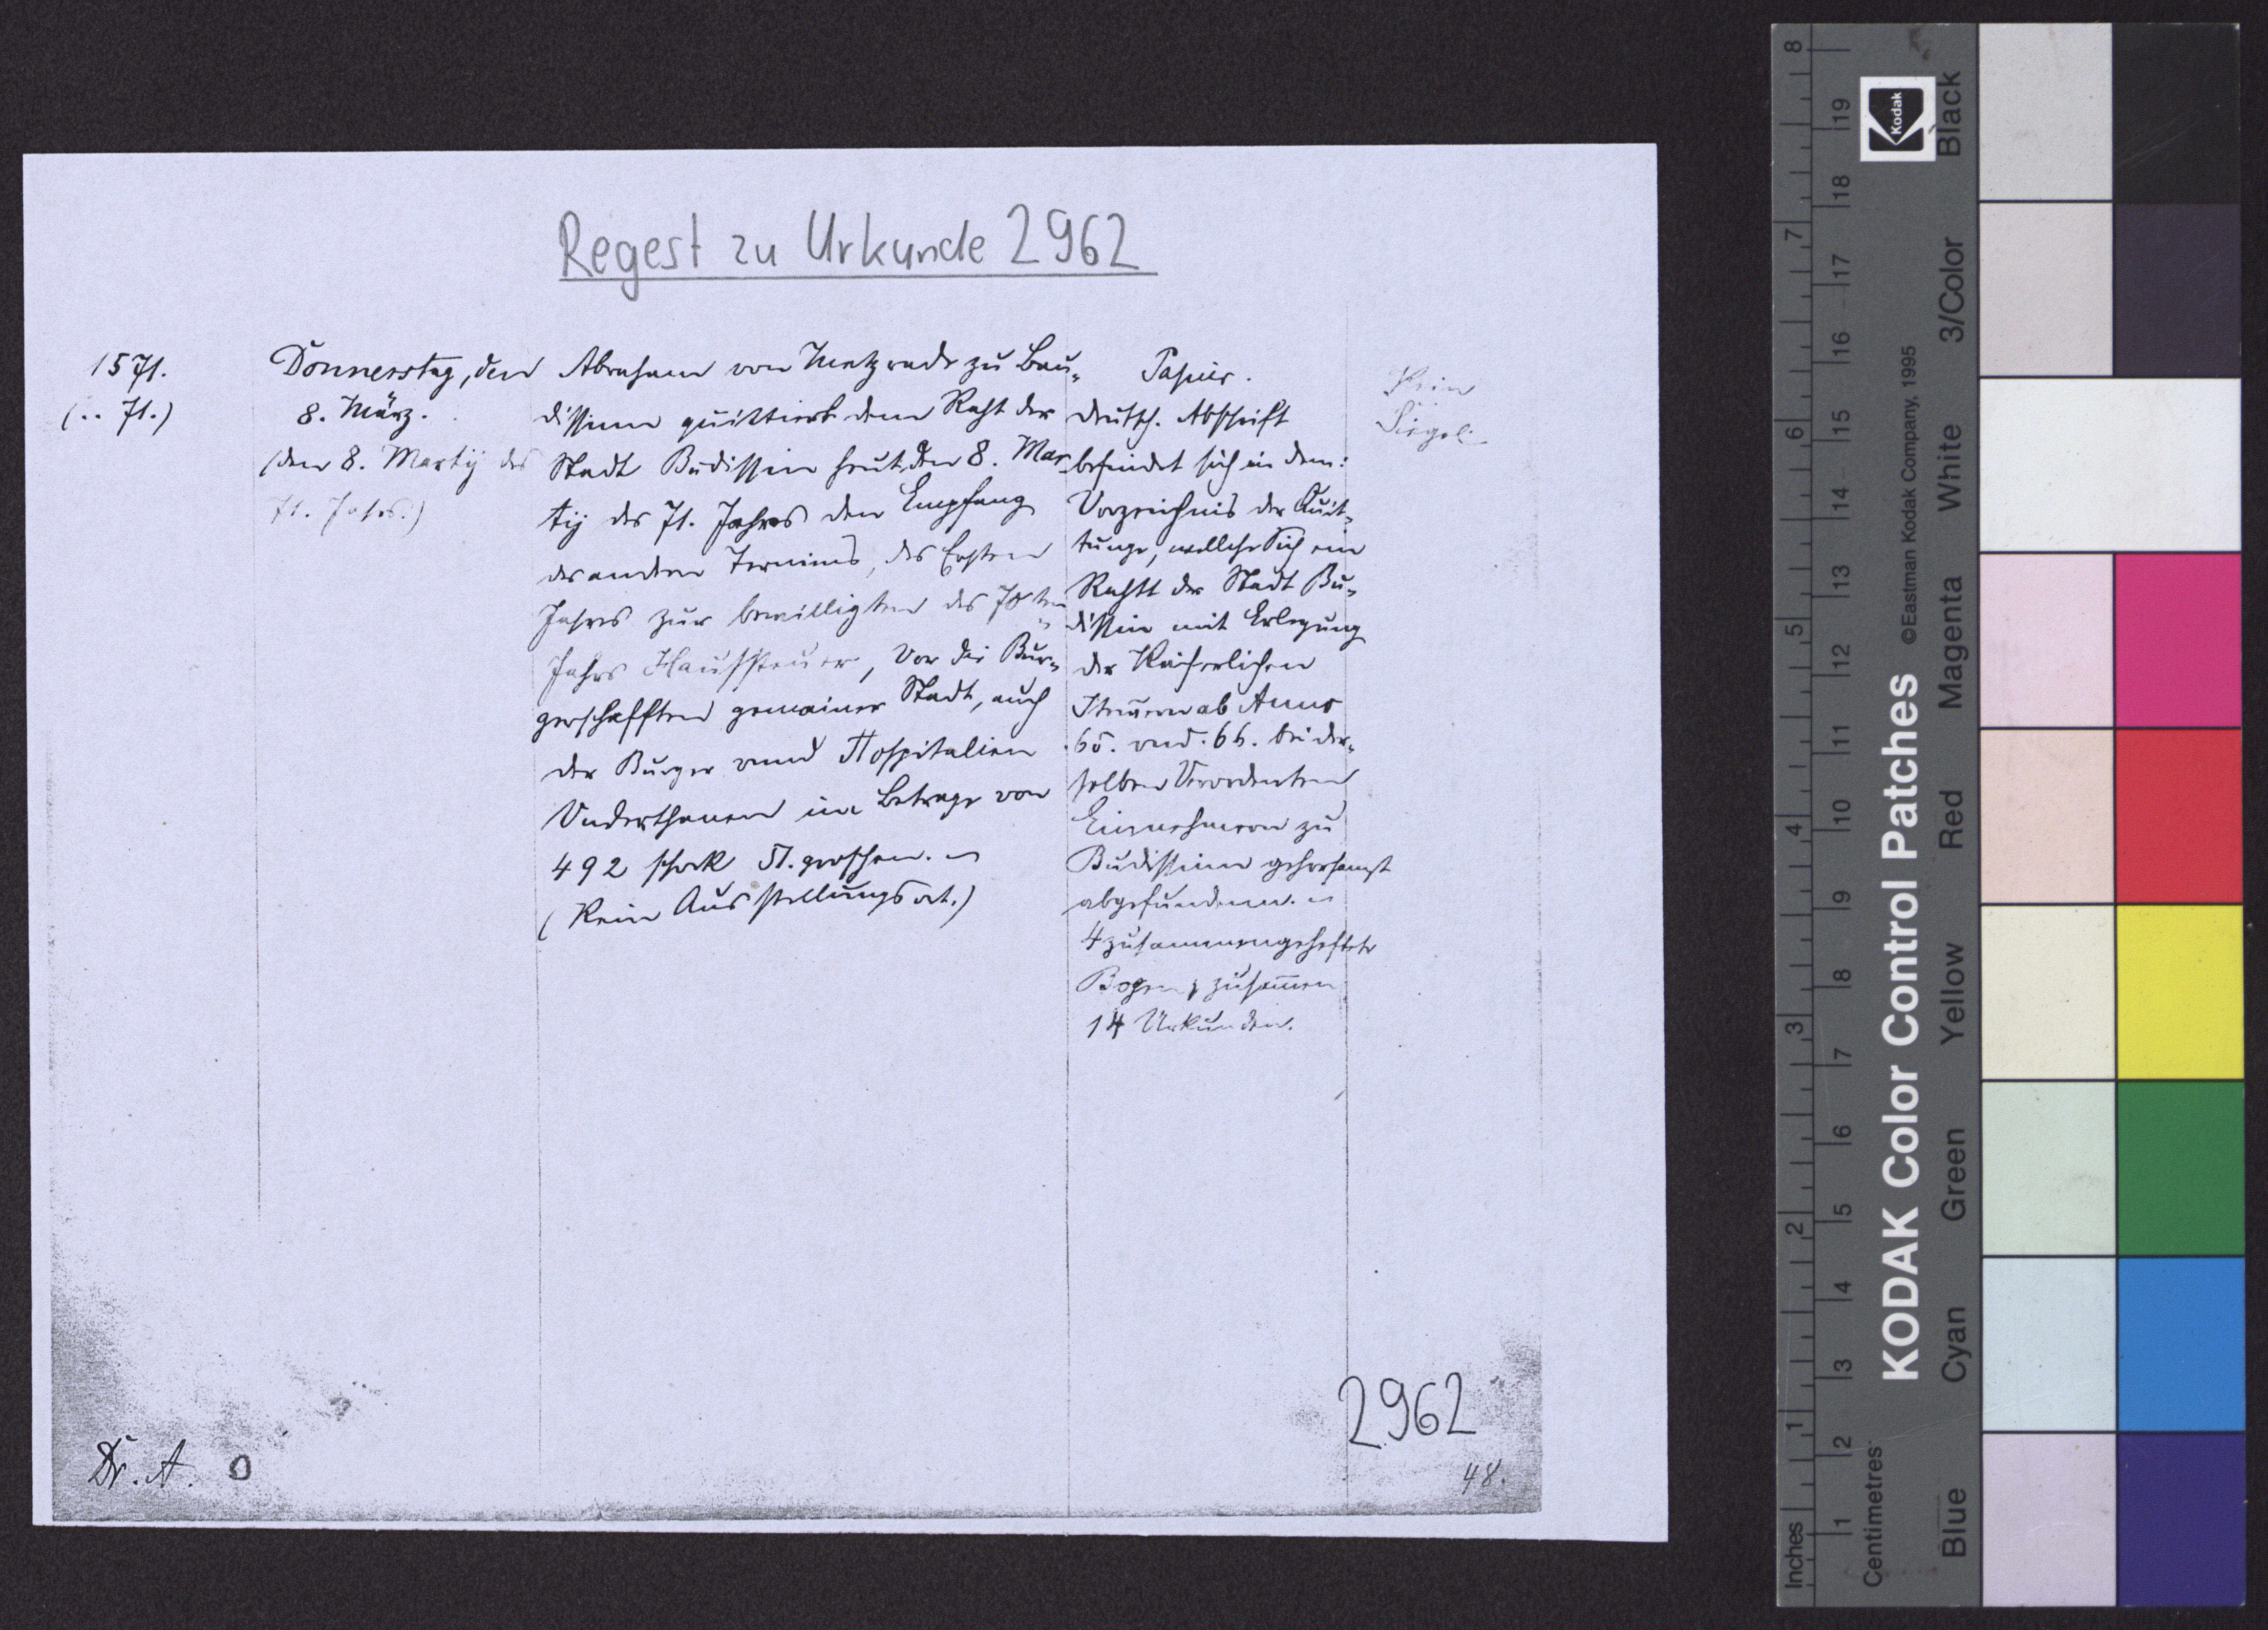 Regest zu Urkunde 2962
1571.
(.. 71.)
Donnerstag, den
8. März.
(den 8. Martij des
71. Jahrs.)
Abraham von Metzradt zu Bau-
dissinn quittiert dem Raht der
Stadt Budissin heut, den 8. Mar-
tij des 71. Jahres den Empfang
des andern Termins, des Ersten
Jahres zur bewilligten des 70ten
Jahrs Haussteuer, Von der Bur-
gerschafften gemainer Stadt, auch
der Burger vnnd Hospitalien
Vnderthanen im Betrage von
492 schock 51. groschen.
(Kein Ausstellungsort.)
Papier.
Deutsch. Abschrift
befindet sich in dem:
Vorzeichnis der Quit-
tunge, wellche Sich ein
Rahtt der Stadt Bu-
dissin mit Erlegung
der Kaiserlichen
Steuern ab Anno
65. vnd. 66. bei der-
selben Verordenten
Einnehmern zu
Budissinn gehorsamst
abgefundenn.
4 zusammengeheftete
Bogen, zusammen
14 Urkunden.
Kein
Siegel.
2962
48.
Dr. A. O
KODAK Color Control Patches
©Eastman Kodak Company, 1995
Kodak
Inches
1 2 3 4 5 6 7 8
Centimetres
1 2 3 4 5 6 7 8 9 10 11 12 13 14 15 16 17 18 19
Blue Cyan Green Yellow Red Magenta White 3/Color Black